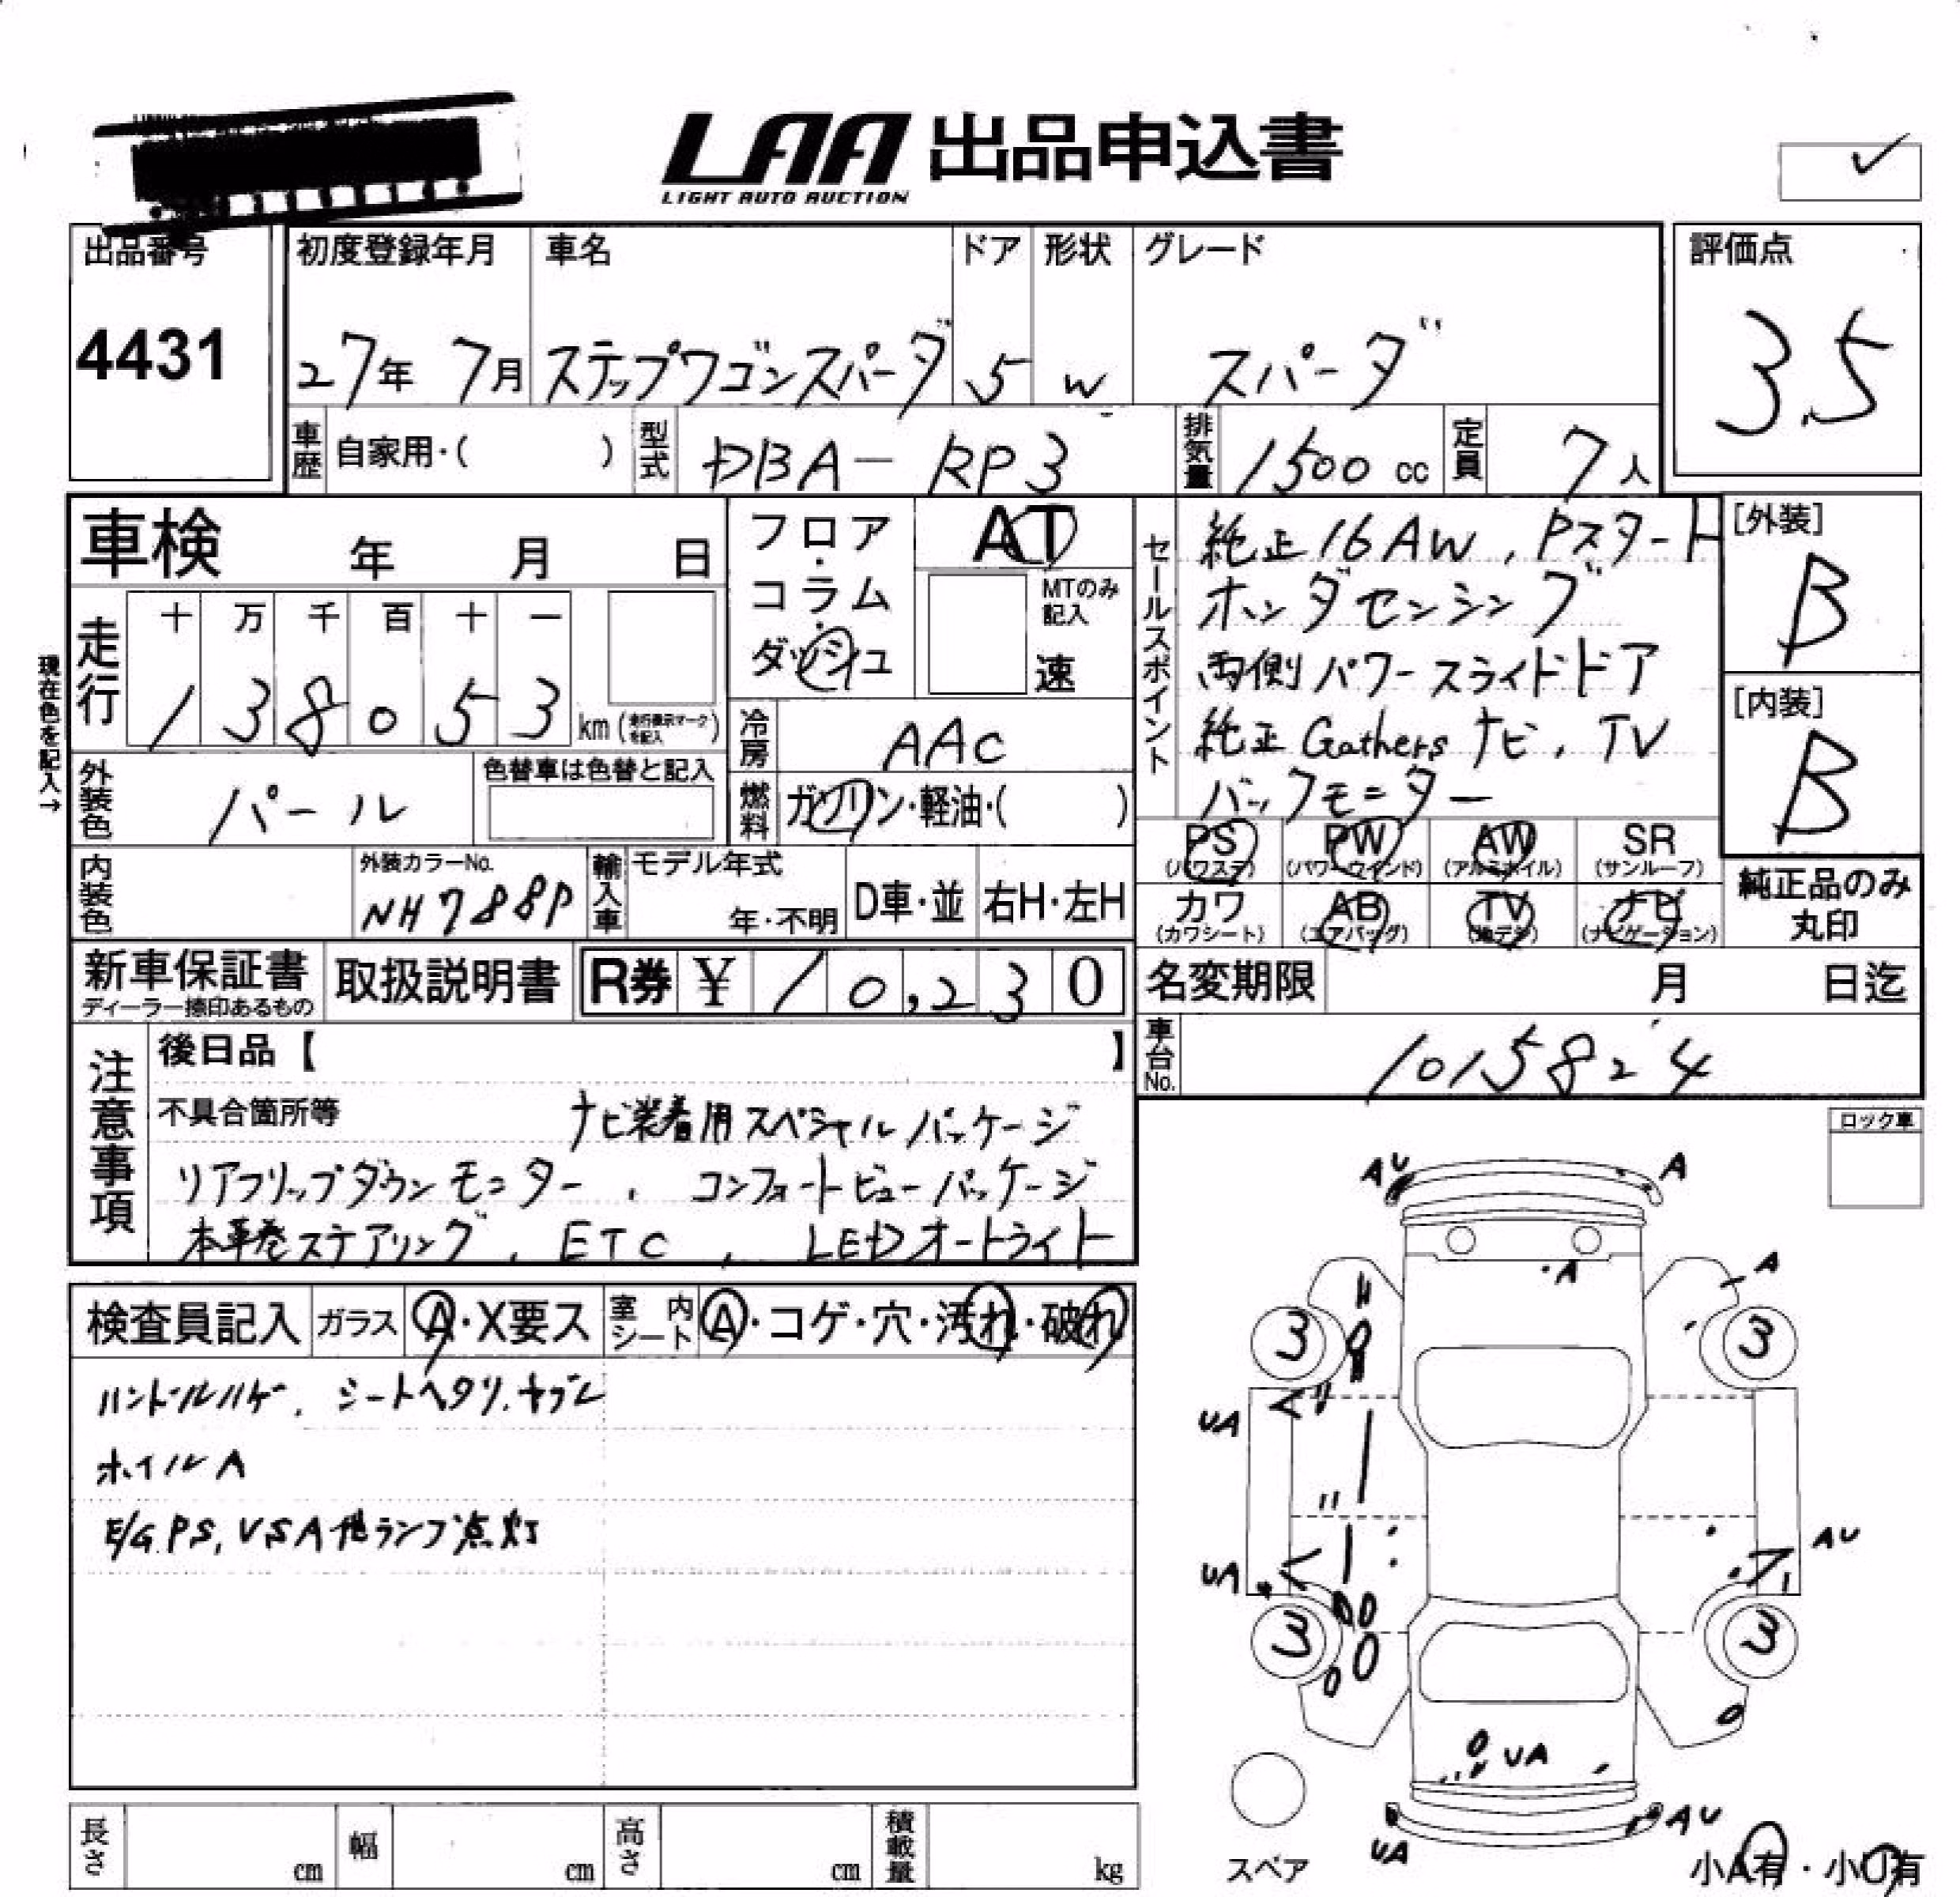 LAA 出品申込書
LIGHT AUTO AUCTION
出品番号
4431
初度登録年月
27年 7月
車名
ステップワゴンスパーダ
ドア
5
形状
W
グレード
スパーダ
評価点
3.5
車歴 自家用・( )
型式 DBA-RP3
排気量 1500 cc
定員 7人
車検 年 月 日
走行
十 万 千 百 十 一
1 3 8 0 5 3 km (走行表示マークを記入)
現在色を記入→
フロア・コラム・ダッシュ
AT
MTのみ記入
速
冷房 AAC
燃料 ガソリン・軽油・( )
外装色 パール
色替車は色替と記入
内装色
外装カラーNo.
NH788P
輸入車
モデル年式
年・不明
D車・並
右H・左H
セールスポイント
純正16AW, Pスタート
ホンダセンシング
両側パワースライドドア
純正Gathersナビ, TV
バックモニター
[外装]
B
[内装]
B
PS (パワステ)
PW (パワーウインド)
AW (アルミホイル)
SR (サンルーフ)
カワ (カワシート)
AB (エアバッグ)
TV (地デジ)
ナビ (ナビゲーション)
純正品のみ丸印
新車保証書
ディーラー捺印あるもの
取扱説明書
R券 ¥ 10,230
名変期限 月 日迄
車台No. 1015824
注意事項
後日品【 】
不具合箇所等 ナビ装着用スペシャルパッケージ
リアフリップダウンモニター, コンフォートビューパッケージ
本革巻ステアリング, ETC, LEDオートライト
ロック車
検査員記入
ガラス A・X要ス
室内シート A・コゲ・穴・汚れ・破れ
ハンドルハゲ, シートヘタリ, ヤブレ
ホイルA
E/G, PS, VSA他ランプ点灯
AU
A
A
A
3
3
UA
UA
AU
3
3
UA
UA
AU
スペア
小A有・小U有
長さ cm
幅 cm
高さ cm
積載量 kg